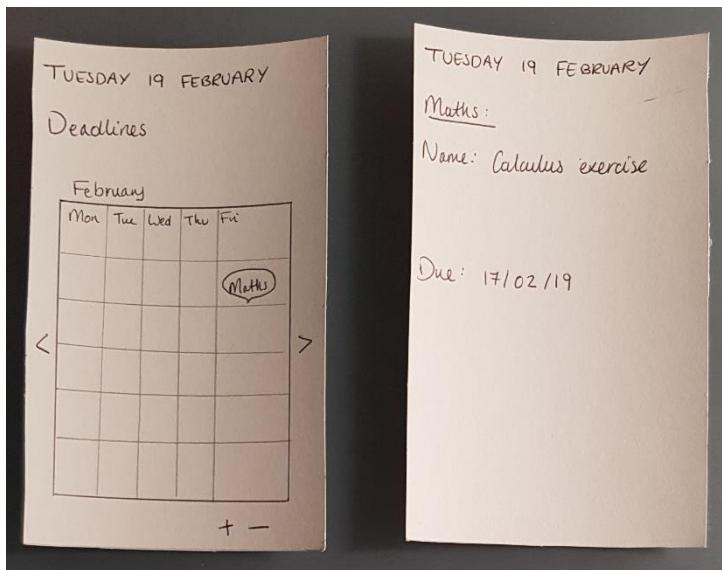 TUESDAY 19 FEBRUARY
Deadlines
February
Mon Tue Wed Thu Fri
Maths
< >
+ −
TUESDAY 19 FEBRUARY
Maths:
Name: Calculus exercise
Due: 17/02/19